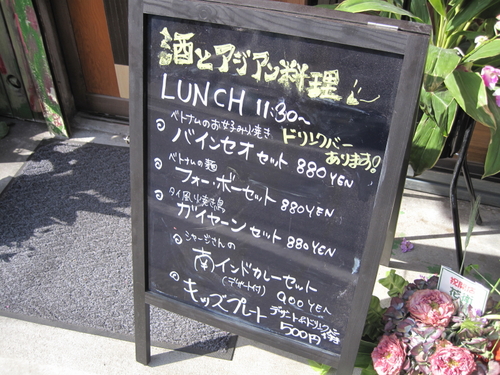 酒とアジアン料理
LUNCH 11:30~
ベトナムのお好み焼き
ドリンクバー
あります!
バインセオセット 880YEN
ベトナムの麺
フォー・ボーセット 880YEN
タイ風焼き鳥
ガイヤーンセット 880YEN
シャージさんの
南インドカレーセット
(デザート付) 900YEN
キッズプレート
デザート&ドリンクバー付
500円